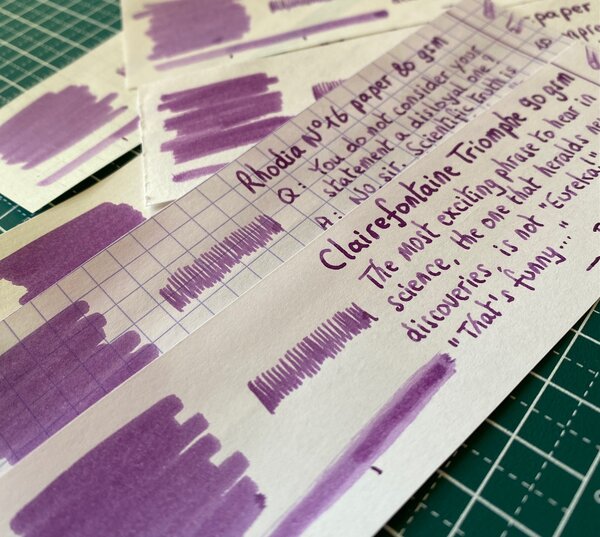 paper
Rhodia N°16 paper 80 gsm
Q: You do not consider your
statement a disloyal one?
A: No sir. Scientific truth is
Clairefontaine Triomphe 90 gsm
The most exciting phrase to hear in
science, the one that heralds
discoveries, is not "Eureka!"
"That's funny..."